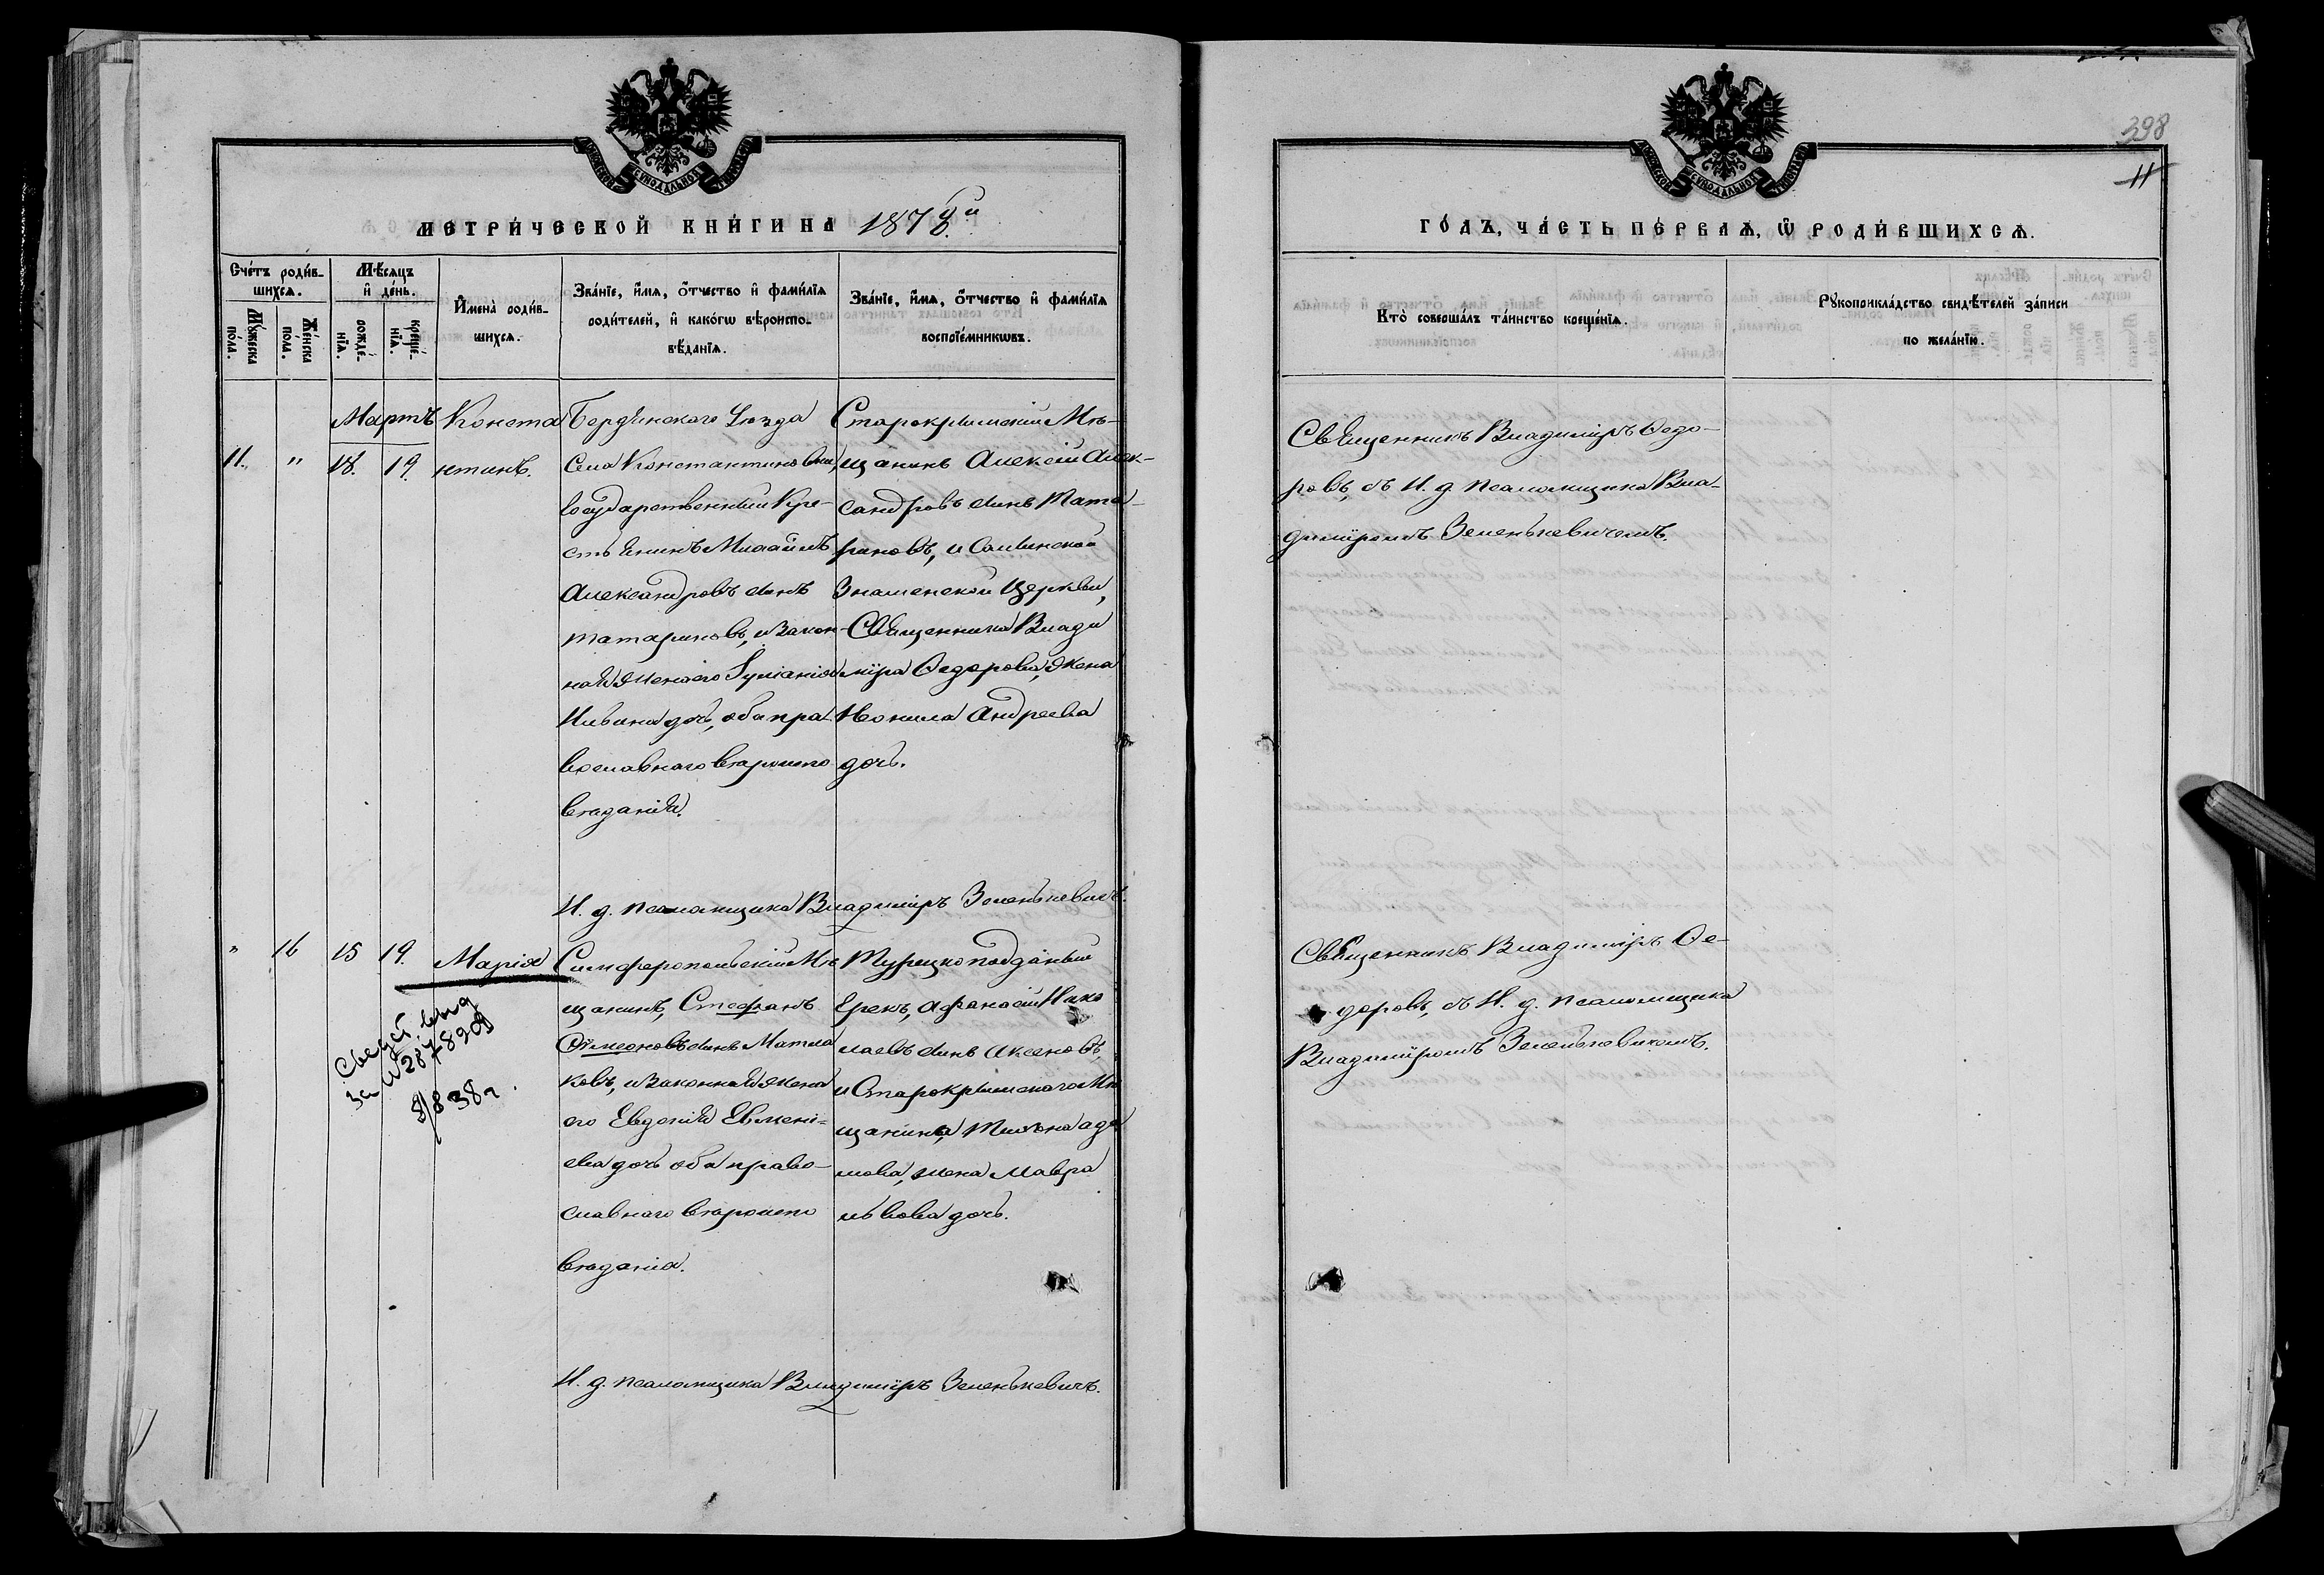 398
11
МОСКОВСКОЙ СѴНОДАЛЬНОЙ ТИПОГРАФІИ
МЕТРИ́ЧЕСКОЙ КНИ́ГИ НА 1878й
Сче́тъ роди́в-
шихсѧ.
Мꙋ́жеска
по́ла.
Же́нска
по́ла.
Мѣ́сѧцъ
и҆ де́нь.
рожде́-
нїѧ.
креще́-
нїѧ.
И҆мена̀ роди́в-
шихсѧ.
Зва́нїе, и҆́мѧ, ѻ҆́тчество и҆ фами́лїѧ
роди́телей, и҆ како́гѡ вѣроиспо-
вѣ́данїѧ.
Зва́нїе, и҆́мѧ, ѻ҆́тчество и҆ фами́лїѧ
воспрїе́мникѡвъ.
Мартъ
11.
"
18.
19.
Конста
нтинъ.
Бердянского Уѣзда
Села Константиновки,
Государственный Кре-
стьянинъ Михаилъ
Александровъ сынъ
Татариновъ, и закон-
ная жена его
Ивана дочь, оба пра
вославнаго вѣроиспо
вѣданія.
Старокрымскій Мѣ-
щанинъ Алексѣй Алек-
сандровъ сынъ Тата-
риновъ, и
Знаменской Церкви,
Священника Влади
міра Федорова, жена
Неонила Андреева
дочь.
И. д. псаломщика Владиміръ Зеленькевичъ.
"
16
15
19.
Марія
Симферопольскій Мѣ
щанинъ, Стефанъ
Симеоновъ сынъ
ковъ, и законная жена
его Евдокія Евмені-
ева дочь оба право-
славнаго вѣроиспо
вѣданія.
Турецкоподданый
Грекъ, Афанасій Нико
лаевъ сынъ Аксеновъ,
и Старокрымскаго Мѣ
щанина, Тихона Ада
мова, жена Мавра
Львова дочь.
за №
8/8 38г.
И. д. псаломщика Владиміръ Зеленькевичъ.
МОСКОВСКОЙ СѴНОДАЛЬНОЙ ТИПОГРАФІИ
ГО́ДЪ, ЧА́СТЬ ПЕ́РВАѦ, Ѡ҆ РОДИ́ВШИХСѦ.
Кто̀ соверша́лъ та́инство креще́нїѧ.
Рꙋкоприкла́дство свидѣ́телей за́писи
по жела́нїю.
Священникъ Владиміръ Федо-
ровъ, съ И. д. псаломщика Вла-
диміромъ Зеленькевичемъ.
Священникъ Владиміръ Фе-
доровъ, съ И. д. псаломщика
Владиміромъ Зеленькевичемъ.